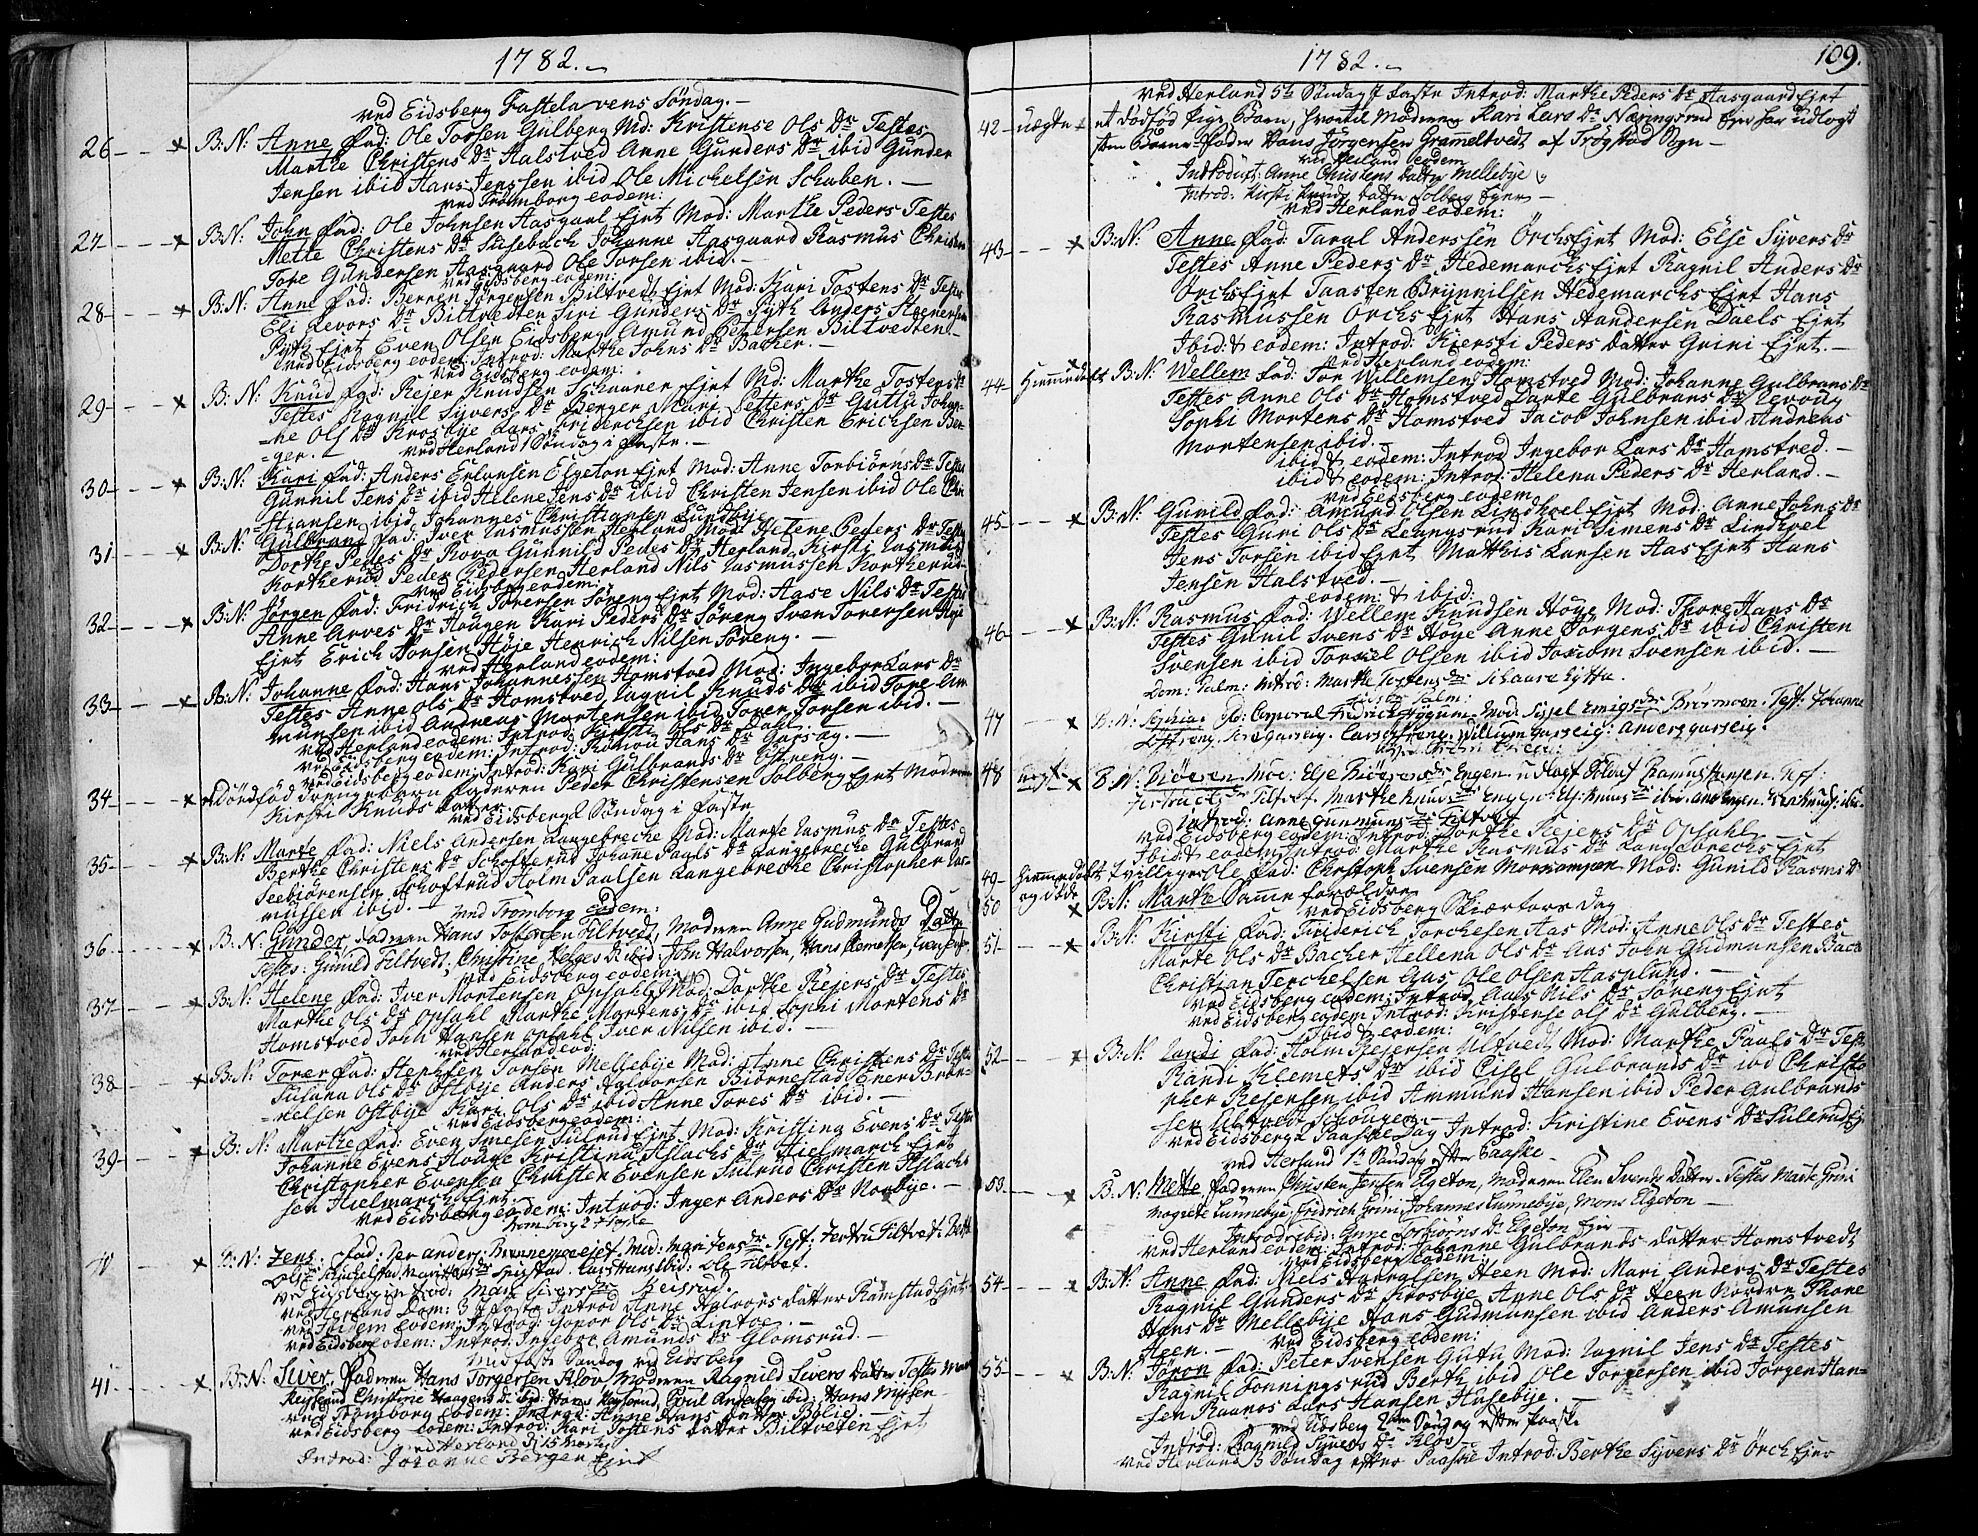 1782.
ved Eidsberg Fastelavens Söndag.
26 B:N: Anne Fad: Ole Torsen Gulberg Md: Kristense Ols Dr Testes
Marthe Christens Dr Halstved Anne Gunders Dr ibid Gunder
Jensen ibid Hans Jenssen ibid Ole Michelsen Schuben.
ved Tromborg eodem:
27 B:N: John Fad: Ole Johnsen Aasgaal Ejet Mod: Marthe Peders Testes
Mette Christens Dr Susebach Johanne Aasgaard Rasmus Christen
Tore Gundersen Aasgaard Ole Torsen ibid.
ved Eidsberg eodem:
28 B:N: Anne Fad: Berren Jörgensen Biltvedt Ejet Mod: Kari Tostens Dr Testes
Eli Levors Dr Biltvedten Siri Gunders Dr Pyth Anders Steenersen
Pyth Ejet Even Olsen Eidsberg Amund Petersen Biltvedten
ved Eidsberg eodem Introd: Marthe Johns Dr Bacher.
ved Eidsberg eodem:
29 B:N: Knud Fad: Rejer Knudsen Schaaner Ejet Md: Marthe Tostens Dr
Testes Ragnil Syvers Dr Berger Mari Petters Dr Guttu Johan-
ne Ols Dr Krosbye Lars Friderichsen ibid Christen Erichsen Ber-
ger.
ved Herland 1 Söndag i Faste.
30 B:N: Kari Fad: Anders Erlansen Elgeton Ejet Mod: Anne Torbiörns Dr Testes
Gunnil Jens Dr ibid Helene Jens Dr ibid Christen Jensen ibid Ole Chri
stiansen ibid Johannes Christiansen Lundbye
31 B:N: Gulbrand Fad: Iver Rasmussen Herland Mod: Helene Peders Dr Testes
Dorthe Peders Dr Rova Gunnild Pedes Dr Herland Kirsti Rasmus Dr
Kortherud Peder Pedersen Herland Nils Rasmussen Kortherud
ved Eidsberg eodem:
32 B:N: Jörgen Fad: Fridrich Torersen Söreng Ejet Mod: Aase Nils Dr Testes
Anne Arves Dr Hougen Kari Peders Dr Söreng Sven Torersen Höje
Ejet Erich Torsen Höje Henrich Nilsen Söreng.
ved Herland eodem:
33 B:N: Johanne Fad: Hans Johannessen Homstved Mod: Ingebor Lars Dr
Testes Anne Ols Dr Homstved Ragnil Knuds Dr ibid Tore Am
munsen ibid Andreas Mortensen ibid Torer Torsen ibid.
ved Herland eodem: Introd Kirsti Ols Dr Dahl
ved Eidsberg eodem: Introd: Romou Hans Dr Garsag.
ved Eidsberg eodem: Introd: Kari Gulbrands Dr Östreng.
34 et Dödfød Drengebarn Faderen Peder Christensen Solberg Ejet Moderen
Kirsti Knuds Datter
ved Eidsberg 2 Söndag i Faste
35 B:N: Marte Fad: Niels Andersen Langebreche Mod: Marte Rasmus Dr Testes
Berthe Christens Dr Schofterud Johane Pauls Dr Langebreche Gulbrand
Seebiörensen Schoftrud Holm Paulsen Langebreche Christopher Ras-
mussen ibid.
ved Tromborg eodem:
36 B:N: Gunder, Faderen Hans Tostensen Tiltvedt, Moderen Anne Gudmunds Datter
Testes: Gunild Tiltvedt, Christine Helges D: ibid: John Halvorsen, Hans Clemetsen,
ved Eidsberg eodem:
37 B:N: Helene Fad: Iver Mortensen Opsahl Mod: Dorthe Rejers Dr Testes
Marthe Ols Dr Opsahl Marthe Mortens Dr ibid Sophi Mortens Dr
Homstved John Hansen Opsahl Iver Nilsen ibid.
ved Herland eod:
38 B:N: Torer Fad: Stephen Torsen Mellebye Mod: Anne Christens Dr Testes
Susana Ols Dr Ostbye Anders Halvorsen Biörnestad Ener Brör-
relsen Ostbye Kari Ols Dr ibid Anne Tores Dr ibid.
ved Eidsberg eodem:
39 B:N: Marthe Fad: Even Smesen Sulrud Ejet Mod: Kristina Evens Dr Testes
Johanne Evens Houge Kristina Aslachs Dr Hielmarch Ejet
Christopher Evensen Christen Evensen Sulrud Christen Aslach
sen Hielmarch Ejet.
ved Eidsberg eodem: Introd: Inger Anders Dr Norbye.
Tromborg 2 Faste
40 B:N: Jens. Fad: Per Anders: Brennemoeejet Mod: Mari Jens Dr Test: Jertru Tiltvedt:
ved Eidsberg Introd: Mari Sivers Dr Reisrud.
ved Herland Dom: 3 i Faste Introd Anne Halvors Datter Ramstad Ejet
ved ibidem eodem: Introd: Gonor Ols Dr Lintoe.
ved Eidsberg eodem: Introd: Ingebor Amunds Dr Glomsrud.
Midfaste Söndag ved Eidsberg
41 B:N: Siver. Faderen Hans Torgersen Klov, Moderen Ragnild Sivers Datter Testes Marte
Reisrud, Christine Haagens D: ibid: Hans Reisrud, Poul Andersen ibid: Hans Mysen
ved Tromborg eodem: Introd: Anne Hans Datter Bölie.
ved Eidsberg eodem: Introd: Kari Tostens Datter Biltveten Ejet
ved Herland d: 15 Martz
Introd: Johanne Bergen Ejet
1782. 109.
ved Herland 5te Söndag i Faste Introd: Marthe Peders Dr Aasgaard Ejet
42 uægte et Dødfød Pige Barn, hvortil Moderen Kari Lars Dr Næringsrud Ejer har udlagt
som Barne-Fader Hans Jörgensen Grameltvedt af Trögstad Sogn
ved Herland eodem
Introduct: Anne Christens Datter Mellebye
Introd: Kirsti Knuds Datter Solberg Ejer
ved Herland eodem:
43 B:N: Anne Fad: Taral Anderssen Örchs Ejet Mod: Else Syvers Dr
Testes Anne Peders Dr Hedemarchs Ejet Ragnil Anders Dr
Örchs Ejet Taasten Brynnilsen Hedemarchs Ejet Hans
Rasmussen Örchs Ejet Hans Handersen Daels Ejet
Ibid: & eodem: Introd: Kiersti Peders Datter Grini Ejet.
ved Herland eodem:
44 Hiemmedøbt B:N: Wellem Fad: Tor Willemsen Homstved Mod: Johanne Gulbrans Dr
Testes Anne Ols Dr Homstved Darte Gulbrans Dr Revoug
Sophi Mortens Dr Homstved Jacob Johnsen ibid Andreas
Mortensen ibid.
ibid & eodem: Introd Ingebor Lars Dr Hamstred.
ibid & eodem: Introd: Helena Peders Dr Herland.
ved Eidsberg eodem
45 B:N: Gunild Fad: Amund Olsen Lindhoel Ejet Mod: Anne Johns Dr
Testes Guri Ols Dr Leangsrud Kari Simens Dr Lindhoel
Jens Torsen ibid Ejet Matthis Larsen Aas Ejet Hans
Jensen Halstved.
eodem: & ibid:
46 B:N: Rasmus Fad: Wellem Knudsen Höye Mod: Thore Hans Dr
Testes Gunil Svens Dr Höye Anne Jörgens Dr ibid Christen
Svensen ibid Torkiel Olsen ibid Joxom Svensen ibid.
Dom: Palm: Introd: Marthe Tostens Dr Schaare hytta.
47 B:N: Sophia: Fa: Corporal Fridrich Högum. Mod: Sissel Emigs Dr Brörmoen. Test: Johanne
48 uægte B:N: Biöeren Moe: Else Biöerens Dr Engen
Introd: Anne Gunmuns Dr Tiltvedt
ved Eidsberg eodem: Introd: Dorthe Rejers Dr Opsahl
Ibid: & eodem: Introd Marthe Rasmus Dr Langebrechs Ejet
49 Hiemmedøbt Zvillinger Ole Fad: Christoph Svensen Mod: Gunild Rasmus Dr
50 og døde B:N: Marthe Samme forældre
ved Eidsberg Skiærtors Dag
51 B:N: Kirsti Fad: Friderich Torchesen Aas Mod: Anne Ols Dr Testes
Marte Ols Dr Bacher Hellena Ols Dr Aas John Gudmunsen Bach
Christian Terchelsen Aas Ole Olsen Aasplund.
ved Eidsberg eodem: Introd: Aase Nils Dr Söreng Ejet
ved Eidsberg eodem Introd: Kristense Ols Dr Gulberg.
Ibid & eodem:
52 B:N: Randi Fad: Holm Rejersen Ultvedt Mod: Marthe Pauls Dr Test:
Randi Klemets Dr ibid Cisel Gulbrands Dr ibid Christo
pher Rejersen ibid Ammund Hansen ibid Peder Gulbrands
sen Ultvedt Schougen
ved Eidsberg 2 Paaske Dag Introd: Kristine Evens Dr Sulerud Ej
ved Herland 1te Söndag efter Paaske
53 B:N: Mette, Faderen Christen Jensen Elgeton, Moderen Elen Svends Datter. Testes Marte Grini
Magrete Lunnebye, Fridrich Grini, Johannes Lunnebye, Mons Elgeton
Introd: ibid: Anne Torbiörns D: Elgeton Ejer
ved Herland eodem: Introd: Johanne Gulbrands Datter Homstvedt
ved Eidsberg eodem:
54 B:N: Anne Fad: Niels Haaralsen Heen Mod: Mari Anders Dr Testes
Ragnil Gunders Dr Krosbye Anne Ols Dr Heen Nordre Thore
Hans Dr Mellebye Hans Gudmunsen ibid Anders Amunsen
Heen.
ved Eidsberg eodem:
55 B:N: Jöron Fad: Peter Svensen Gutu Mod: Ragnil Jens Dr Testes
Ragnil Tonnings rud Berth ibid Ole Torgersen ibid Jörgen Han-
sen Raanos Lars Hansen Husebye.
ved Eidsberg 2den Söndag efter Paaske
Introd: Ragnild Syvers Dr Klov
ved Herland 3 Söndag efter Paaske Introd: Berthe Syvers Dr Örch Ejer